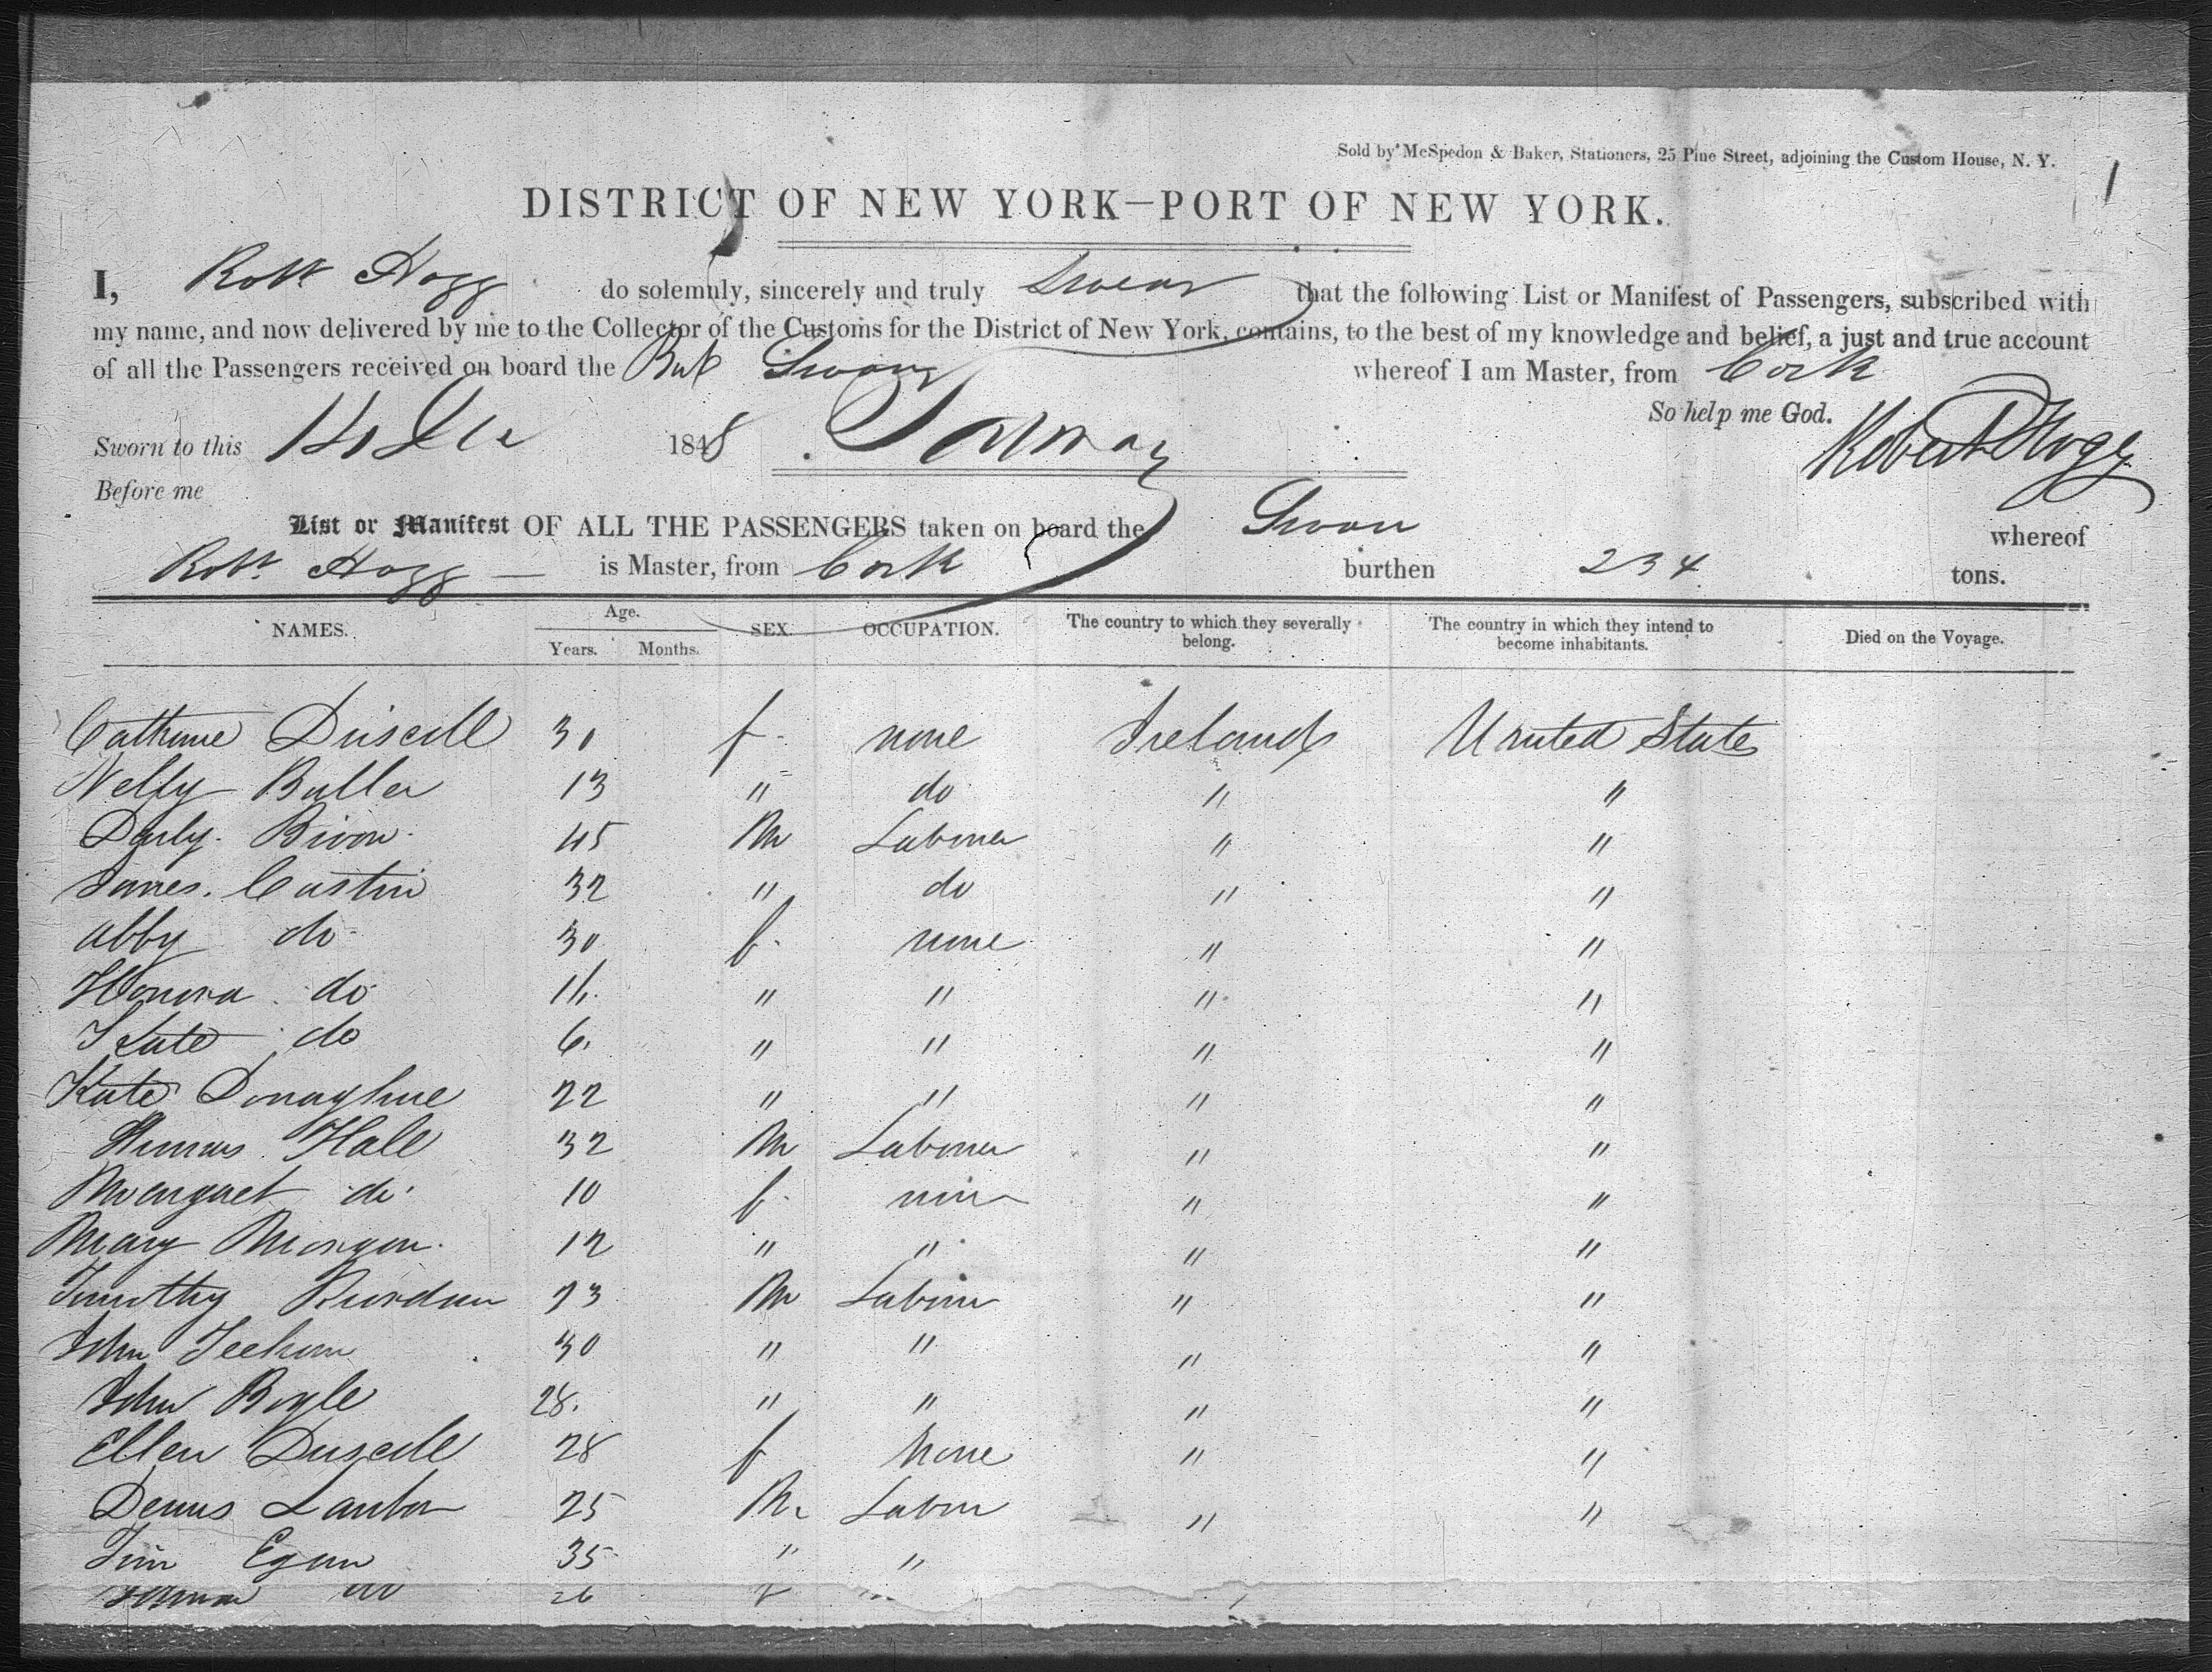 Sold by McSpedon & Baker, Stationers, 25 Pine Street, adjoining the Custom House, N. Y.
1
DISTRICT OF NEW YORK—PORT OF NEW YORK.
I, Robt Hogg do solemnly, sincerely and truly Swear that the following List or Manifest of Passengers, subscribed with
my name, and now delivered by me to the Collector of the Customs for the District of New York, contains, to the best of my knowledge and belief, a just and true account
of all the Passengers received on board the Swan whereof I am Master, from Cork
So help me God.
Sworn to this 14 Dec 1848 Robert Hogg
Before me
List or Manifest OF ALL THE PASSENGERS taken on board the Swan whereof
Robt. Hogg — is Master, from Cork burthen 234 tons.
NAMES. Age. Years. Months. SEX. OCCUPATION. The country to which they severally belong. The country in which they intend to become inhabitants. Died on the Voyage.
Catherine Driscoll 30 f. none Ireland United States
Nelly Butler 13 " do " "
Darly 45 M Laborer " "
James. Costin 32 " do " "
Abby do 30 f. none " "
Honora do 11. " " " "
Kate do 6. " " " "
Kate Donaghue 22 " " " "
Thomas Hall 32 M Laborer " "
Margaret do 10 f. none " "
Mary Morgan. 12 " " " "
Timothy Riordan 23 M Laborer " "
John 30 " " " "
John Boyle 28. " " " "
Ellen Driscoll 28 f none " "
Dennis 25 M. Labor " "
Tim Egan 35 " "
do 26